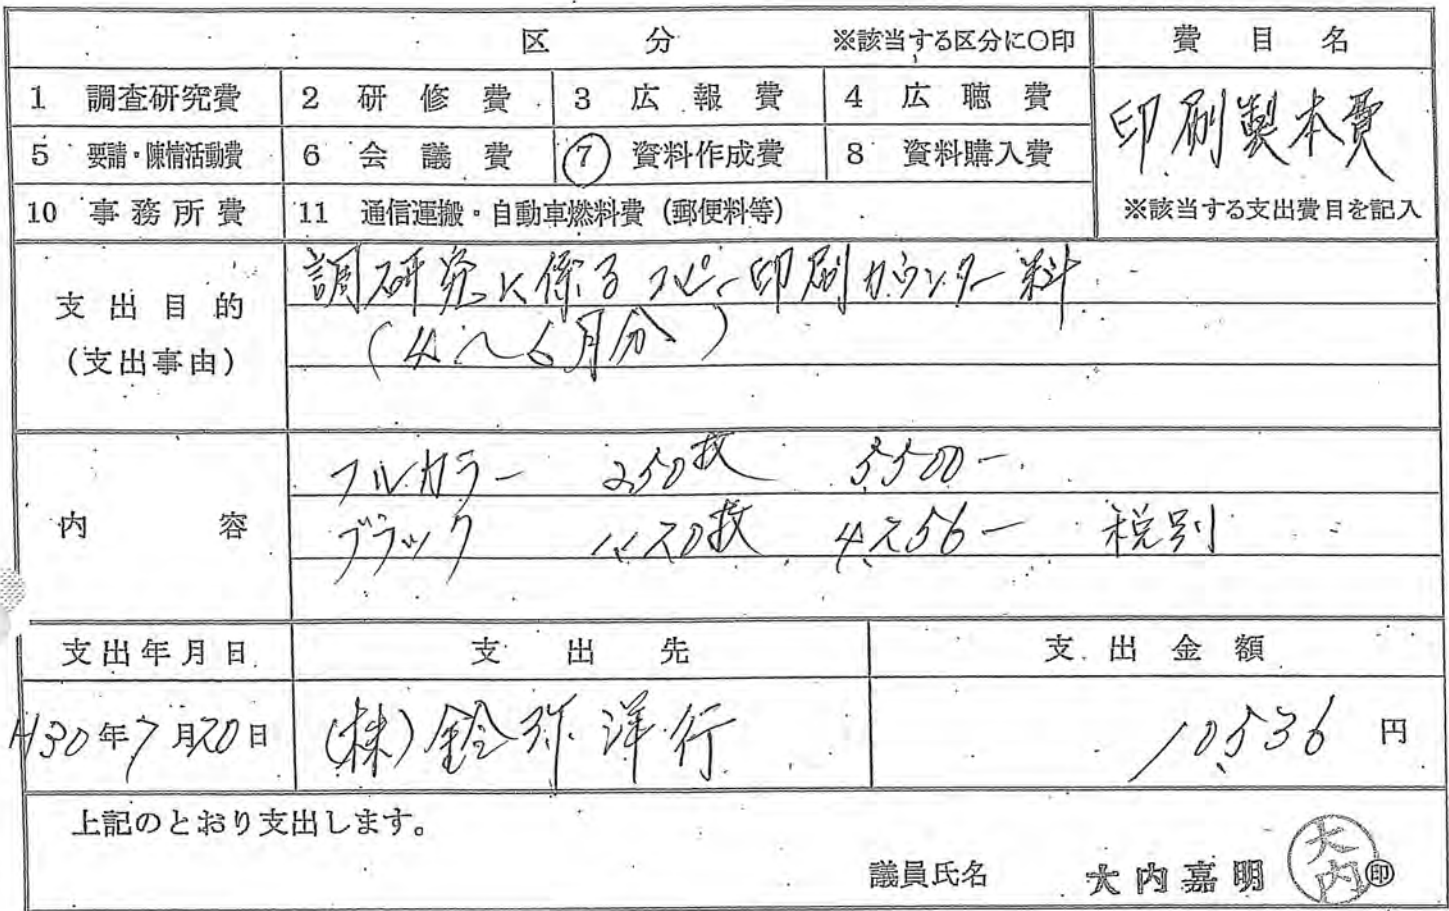 区 分 ※該当する区分に○印 費 目 名
1 調査研究費 2 研 修 費 3 広 報 費 4 広 聴 費
印刷製本費
5 要請・陳情活動費 6 会 議 費 7 資料作成費 8 資料購入費
10 事務所費 11 通信運搬・自動車燃料費（郵便料等） ※該当する支出費目を記入
調研究に係るコピー印刷カウンター料
支 出 目 的
(4〜6月分)
(支出事由)
フルカラー 250枚 5,500-
内 容 ブラック 1,120枚 4,256- 税別
支出年月日 支 出 先 支 出 金 額
H30年7月20日 (株) 弥洋行 10,536 円
上記のとおり支出します。
議員氏名 大内嘉明 大内 印